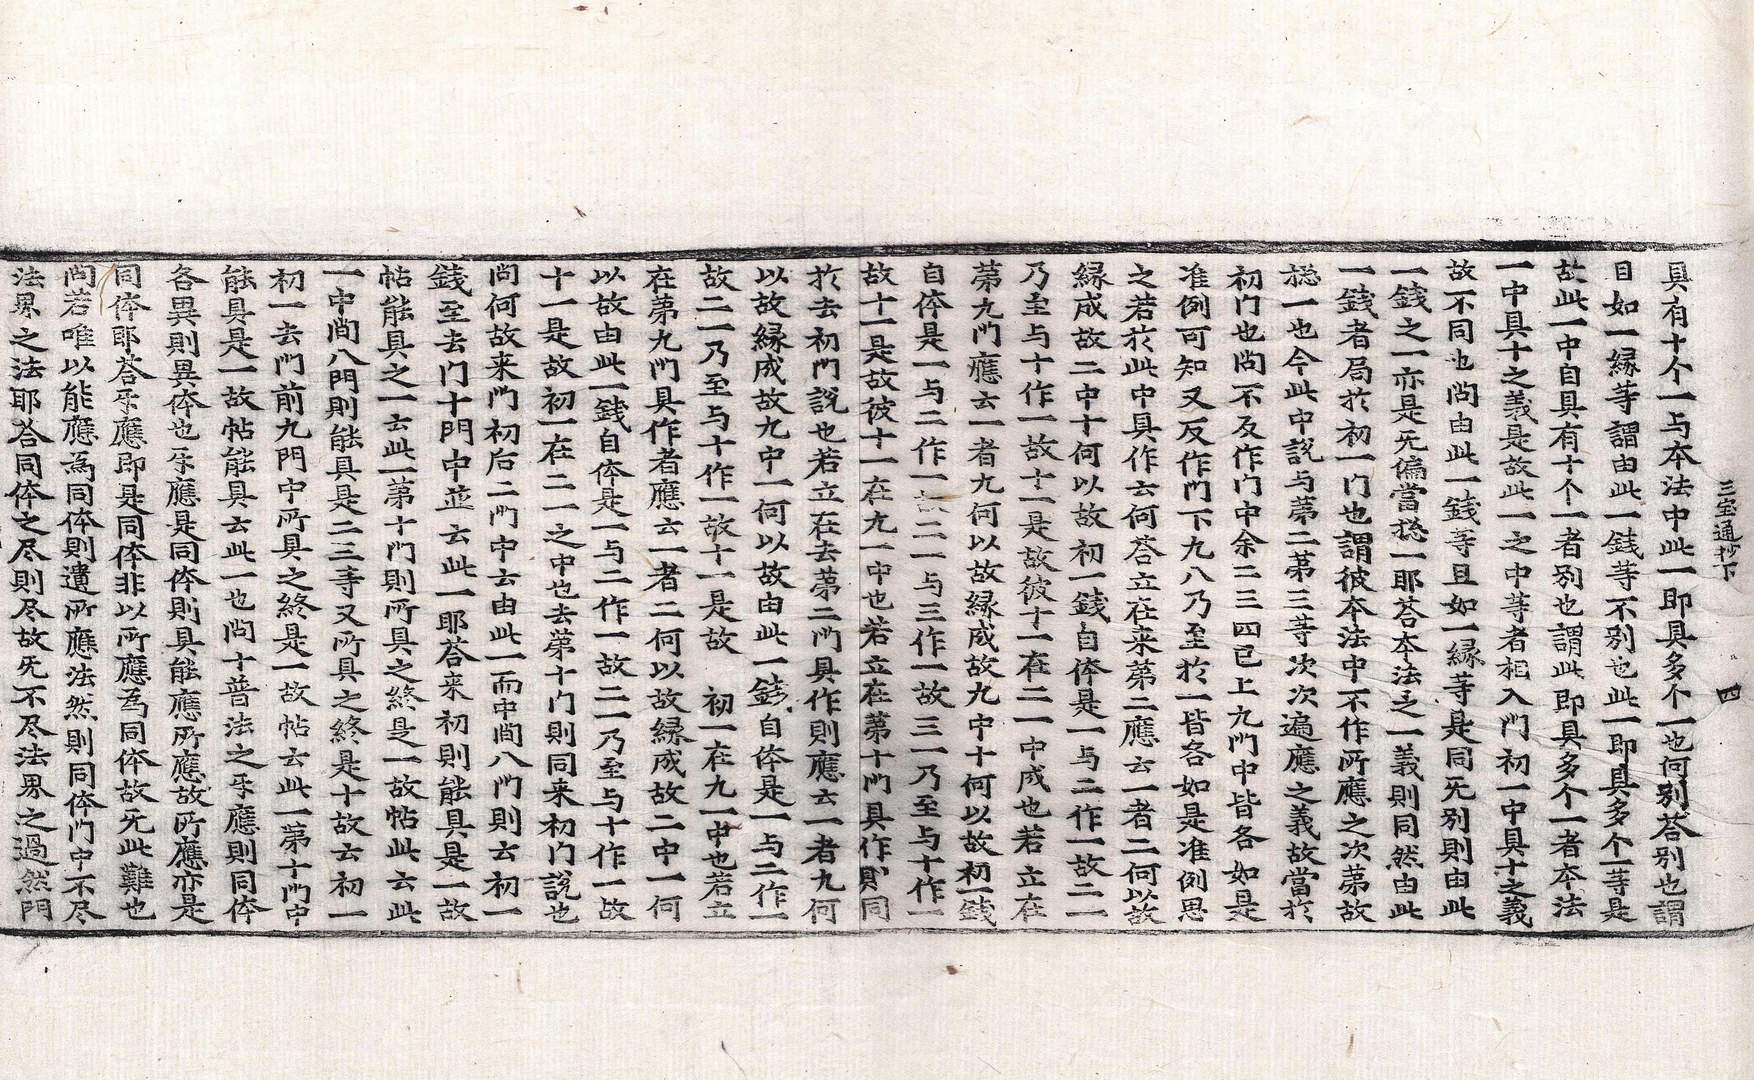 三宝通抄下　四
具有十个一与本法中此一即具多个一也何別荅別也謂
目如一縁等謂由此一銭等不別也此一即具多个一等是
故此一中自具有十个一者別也謂此即具多个一者本法
一中具十之義是故此一之中等者相入門初一中具十之義
故不同也問由此一銭等且如一縁等是同旡別則由此
一銭之一亦是旡偏當捴一耶荅本法之一義則同然由此
一銭者局於初一门也謂彼本法中不作所應之次第故
捴一也今此中説与第二第三等次次遍應之義故當於
初门也問不及作门中余二三四已上九門中皆各如是
准例可知又反作門下九八乃至於一皆各如是准例思
之若於此中具作云何荅立在来第二應云一者二何以故
縁成故二中十何以故初一銭自体是一与二作一故二一
乃至与十作一故十一是故彼十一在二一中成也若立在
第九門應云一者九何以故縁成故九中十何以故初一銭
自体是一与二作一故二一与三作一故三一乃至与十作一
故十一是故彼十一在九一中也若立在第十門具作則同
於去初門説也若立在去第二門具作則應云一者九何
以故縁成故九中一何以故由此一銭自体是一与二作一
故二一乃至与十作一故十一是故　初一在九一中也若立
在第九門具作者應云一者二何以故縁成故二中一何
以故由此一銭自体是一与二作一故二一乃至与十作一故
十一是故初一在二一之中也去第十门則同来初门説也
問何故来門初后二門中云由此一而中間八門則云初一
銭至去门十門中並云此一耶荅来初則能具是一故
帖能具之一云此一第十门則所具之終是一故帖此云此
一中間八門則能具是二三等又所具之終是十故云初一
初一去門前九門中所具之終是一故帖云此一第十門中
能具是一故帖能具云此一也問十普法之乎應則同体
各異則異体也乎應是同体則具能應所應故所應亦是
同体耶荅乎應即是同体非以所應為同体故旡此難也
問若唯以能應為同体則遺所應法然則同体门中不尽
法界之法耶荅同体之尽則尽故旡不尽法界之過然門